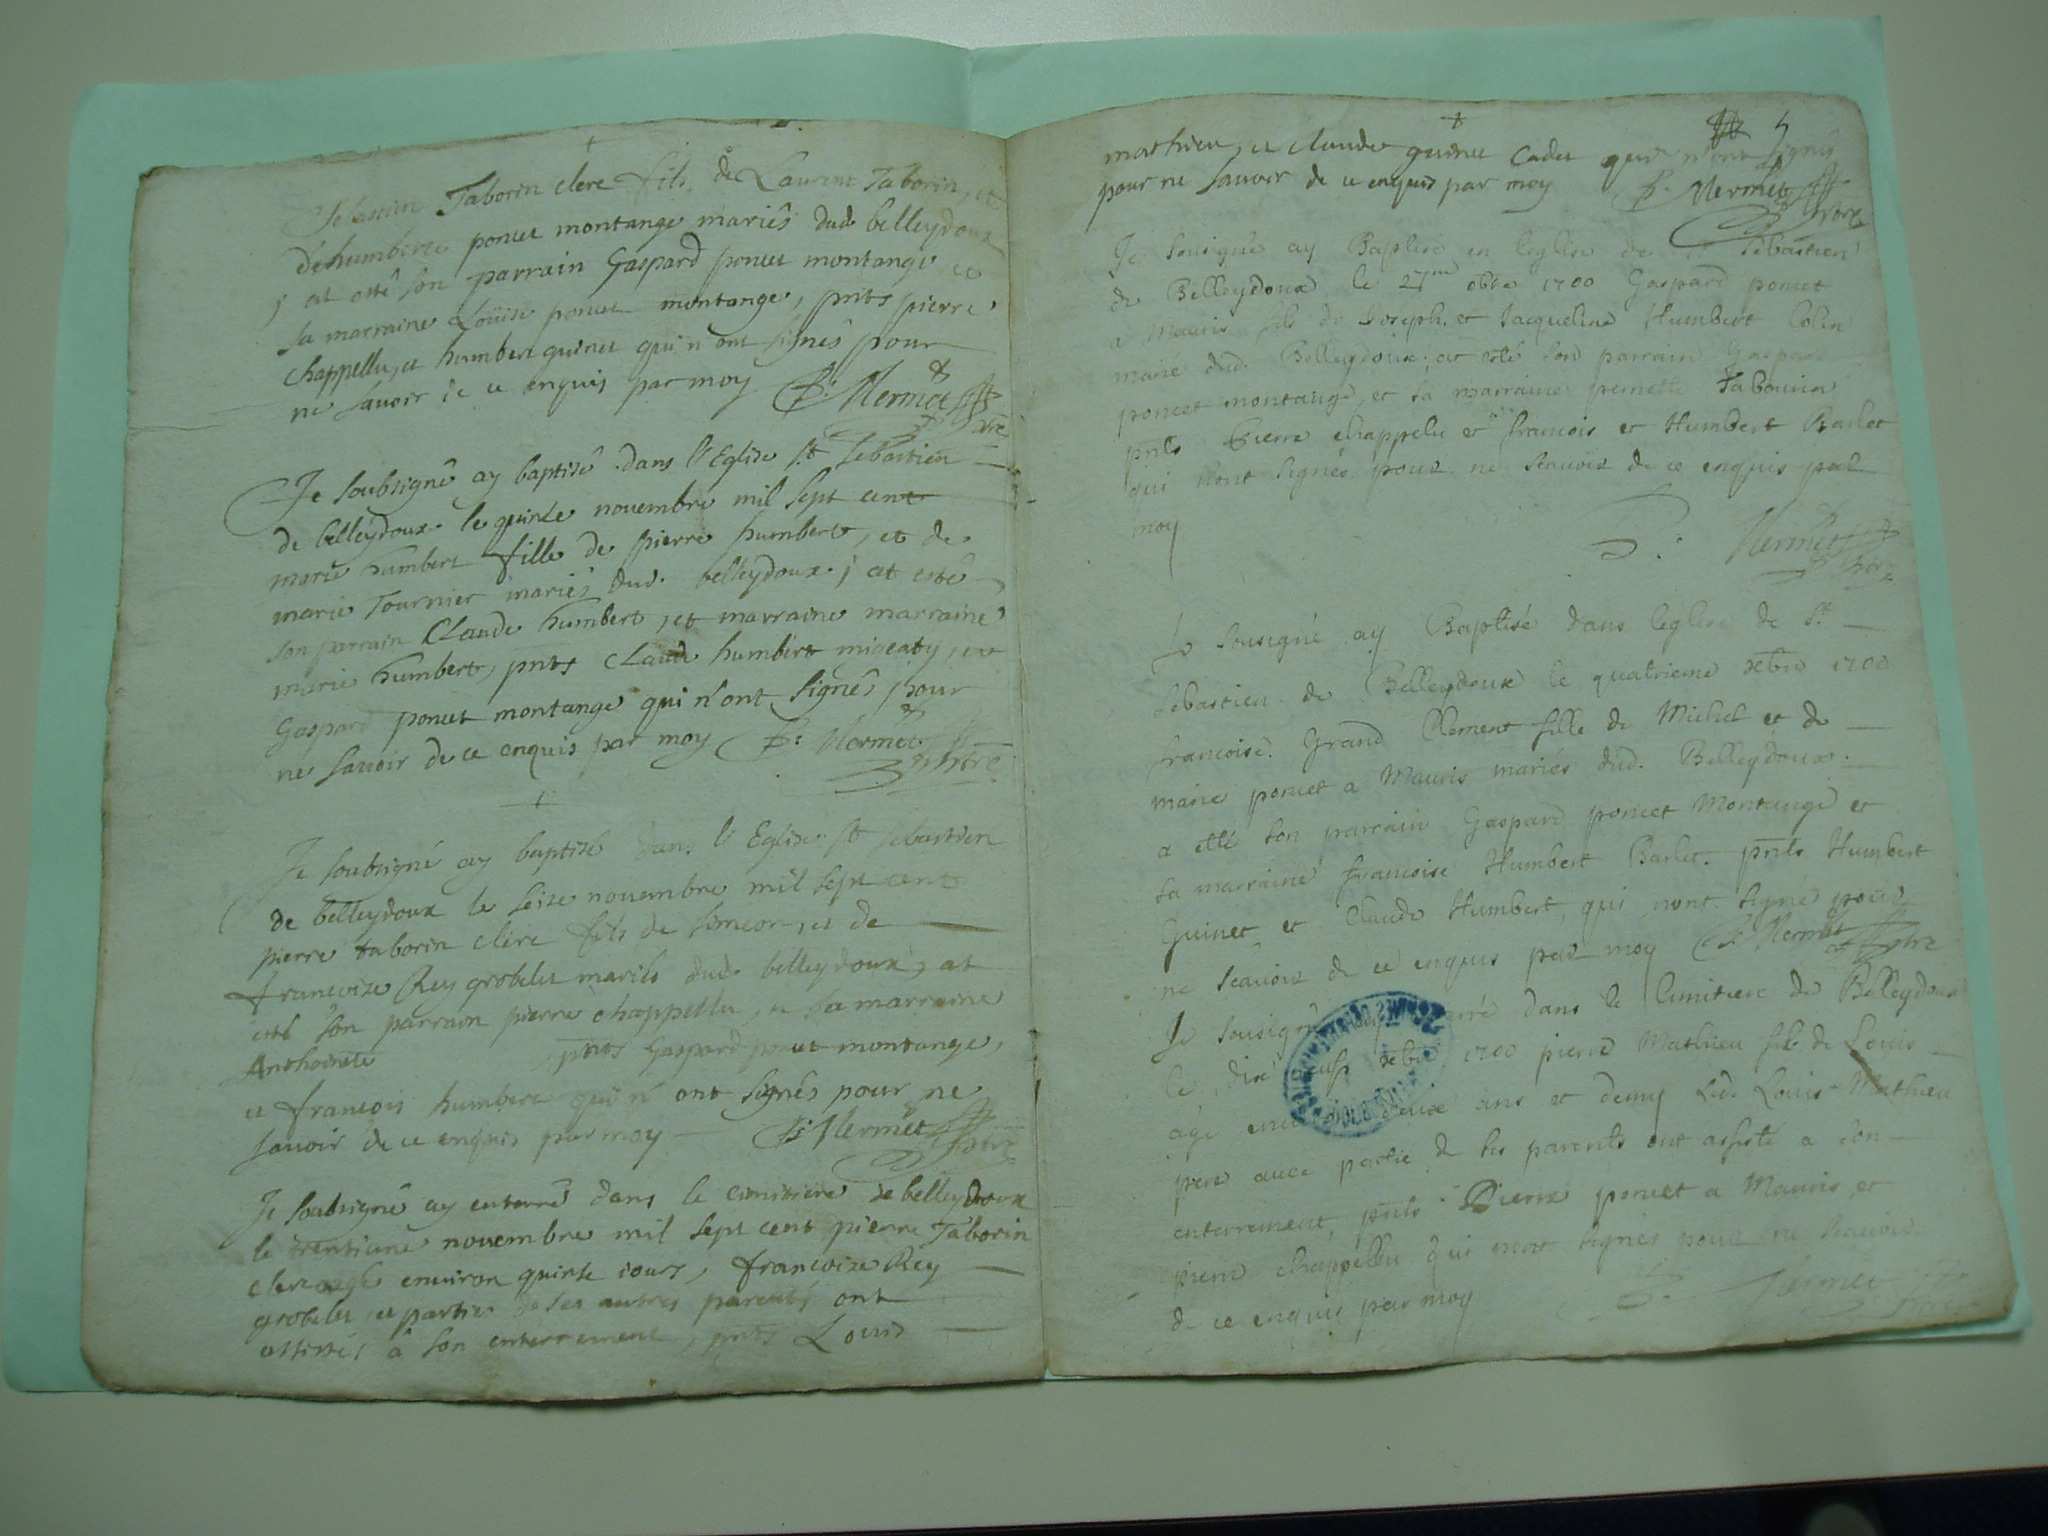 Sebastien Taborin clerc fils de Laurent Taborin, et
de humberte poncet montange mariés dud. belleydoux
j at esté son parrain Gaspard poncet montange et
sa marraine Loüise poncet montange, pnts pierre
chappellu, et humbert guinet qui n'ont signés pour
ne savoir de ce enquis par moy P. Mermet
ptre
Je soubsigné ay baptisé dans l'Eglise St Sebastien
de belleydoux le quinse novembre mil sept cent
marie humbert fille de pierre humbert, et de
marie Tournier mariés dud. belleydoux j at esté
son parrain Claude humbert, et marraine marraine
marie humbert, pnts Claude humbert migeaty, et
Gaspard poncet montange qui n'ont signés pour
ne savoir de ce enquis par moy P. Mermet
ptre
Je soubsigné ay baptisé dans l'Eglise St sebastien
de belleydoux le seise novembre mil sept cent
pierre taborin clerc fils de simeon, et de
francoise Rey grobelet mariés dud. belleydoux, at
esté son parrain pierre chappellu, et sa marraine
Anthoinete pnts Gaspard poncet montange,
et francois humbert qui n'ont signés pour ne
savoir de ce enquis par moy P. Mermet
ptre
Je soubsigné ay enterré dans le cimitiere de belleydoux
le trentieme novembre mil sept cent pierre Taborin
clerc agé environ quinse jours, francoise Rey
grobelet, et partie de ses autres parents ont
assistés à son enterrement, pnts Louis
mathieu, et claude guinet cadet qui n'ont signés
pour ne savoir de ce enquis par moy P. Mermet
ptre
Je sousigné ay Baptisé en leglise de St Sébastien
de Belleydoux le 27me obre 1700 Gaspard poncet
a Mauris fils de Joseph et Jacqueline Humbert Colin
marié dud. Belleydoux; at esté son parrain Gaspard
poncet montange, et sa marraine pernette Tabourin
pnts Pierre chappelu et francois et Humbert Barlet
qui nont signés pour ne scavoir de ce enquis par
moy
P. Mermet
ptre
Je sousigné ay Baptisé dans leglise de St
Sébastien de Belleydoux le quatrieme xbre 1700
francoise Grand Clement fille de Michel et de
marie poncet a Mauris mariés dud. Belleydoux.
a esté son parrain Gaspard poncet Montange et
sa marraine francoise Humbert Barlet. pnts Humbert
Guinet et Claude Humbert, qui nont signé pour
ne scavoir de ce enquis par moy P. Mermet
ptre
Je sousigné ay enterré dans le Cimitiere de Belleydoux
le xbre 1700 pierre Mathieu fils de Louis
agé deux ans et demy Led. Louis Mathieu
pere avec partie de ses parents ont assisté a son
enterrement, pnts Pierre poncet a Mauris, et
pierre chappellu qui n'ont signés pour ne scavoir
de ce enquis par moy P. Mermet
ptre